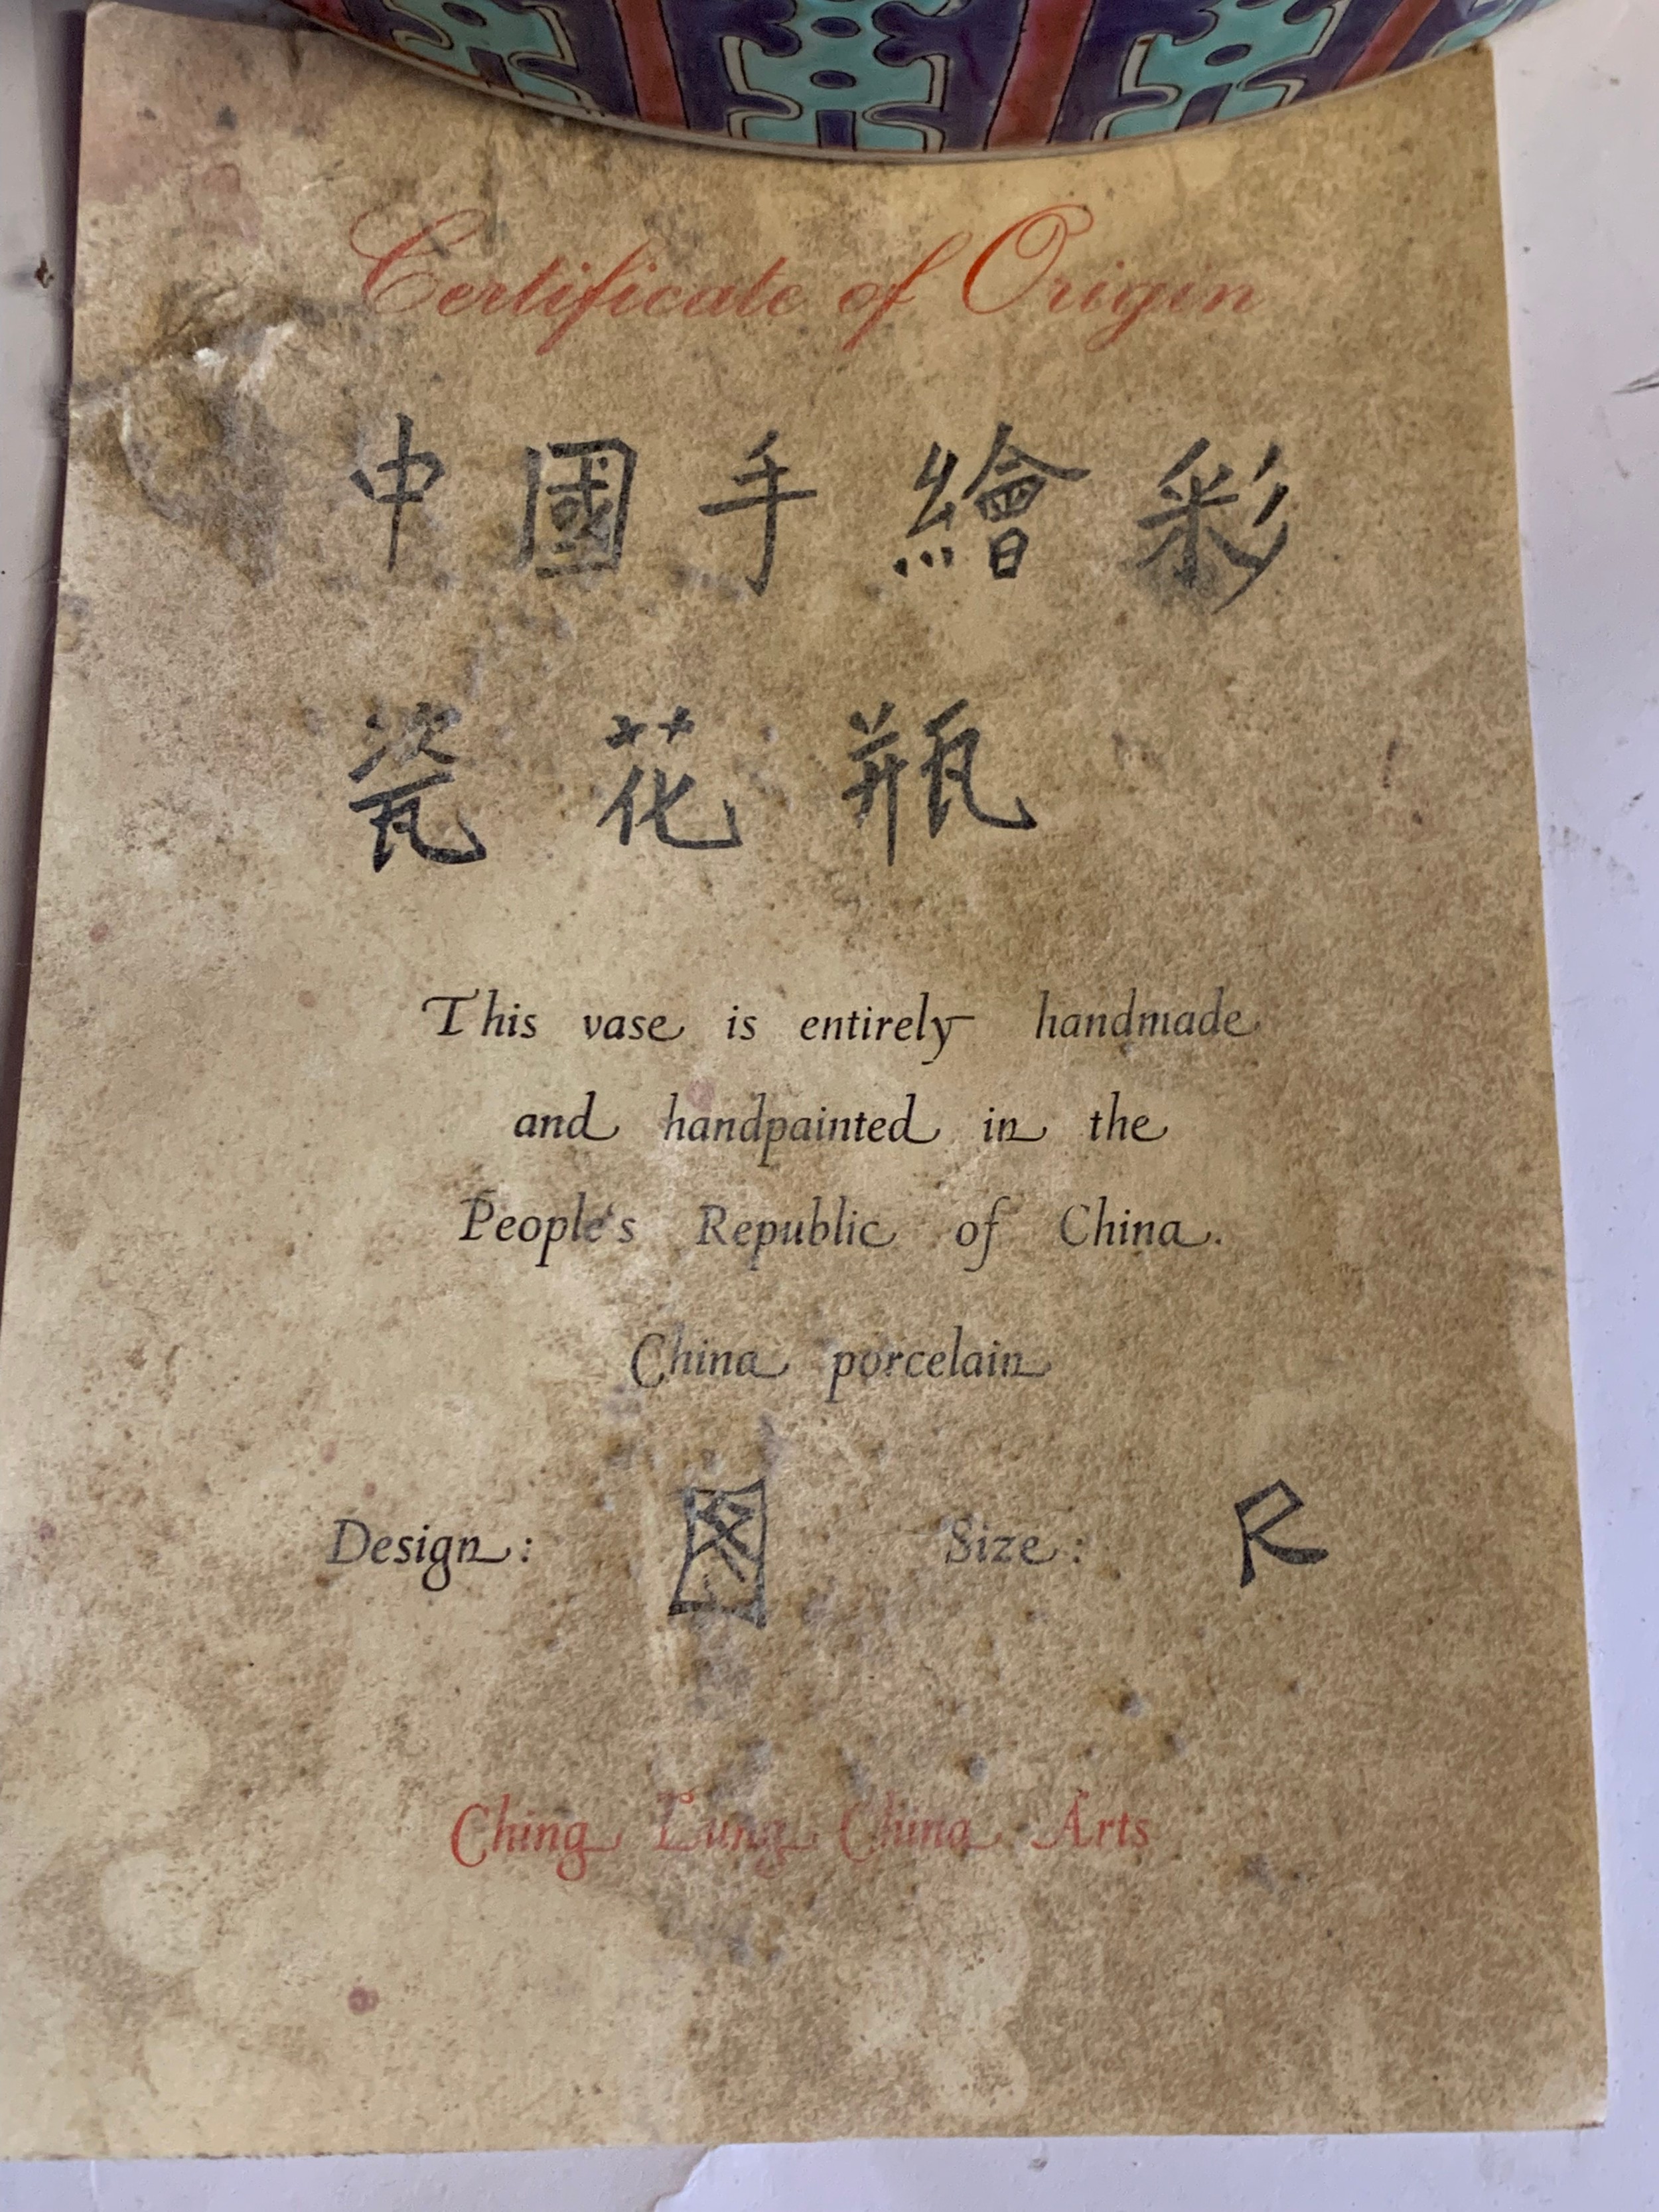 Certificate of Origin
中國手繪彩
瓷花瓶
This vase is entirely handmade
and handpainted in the
People's Republic of China.
China porcelain
Design: 图 Size: R
Ching Lung China Arts